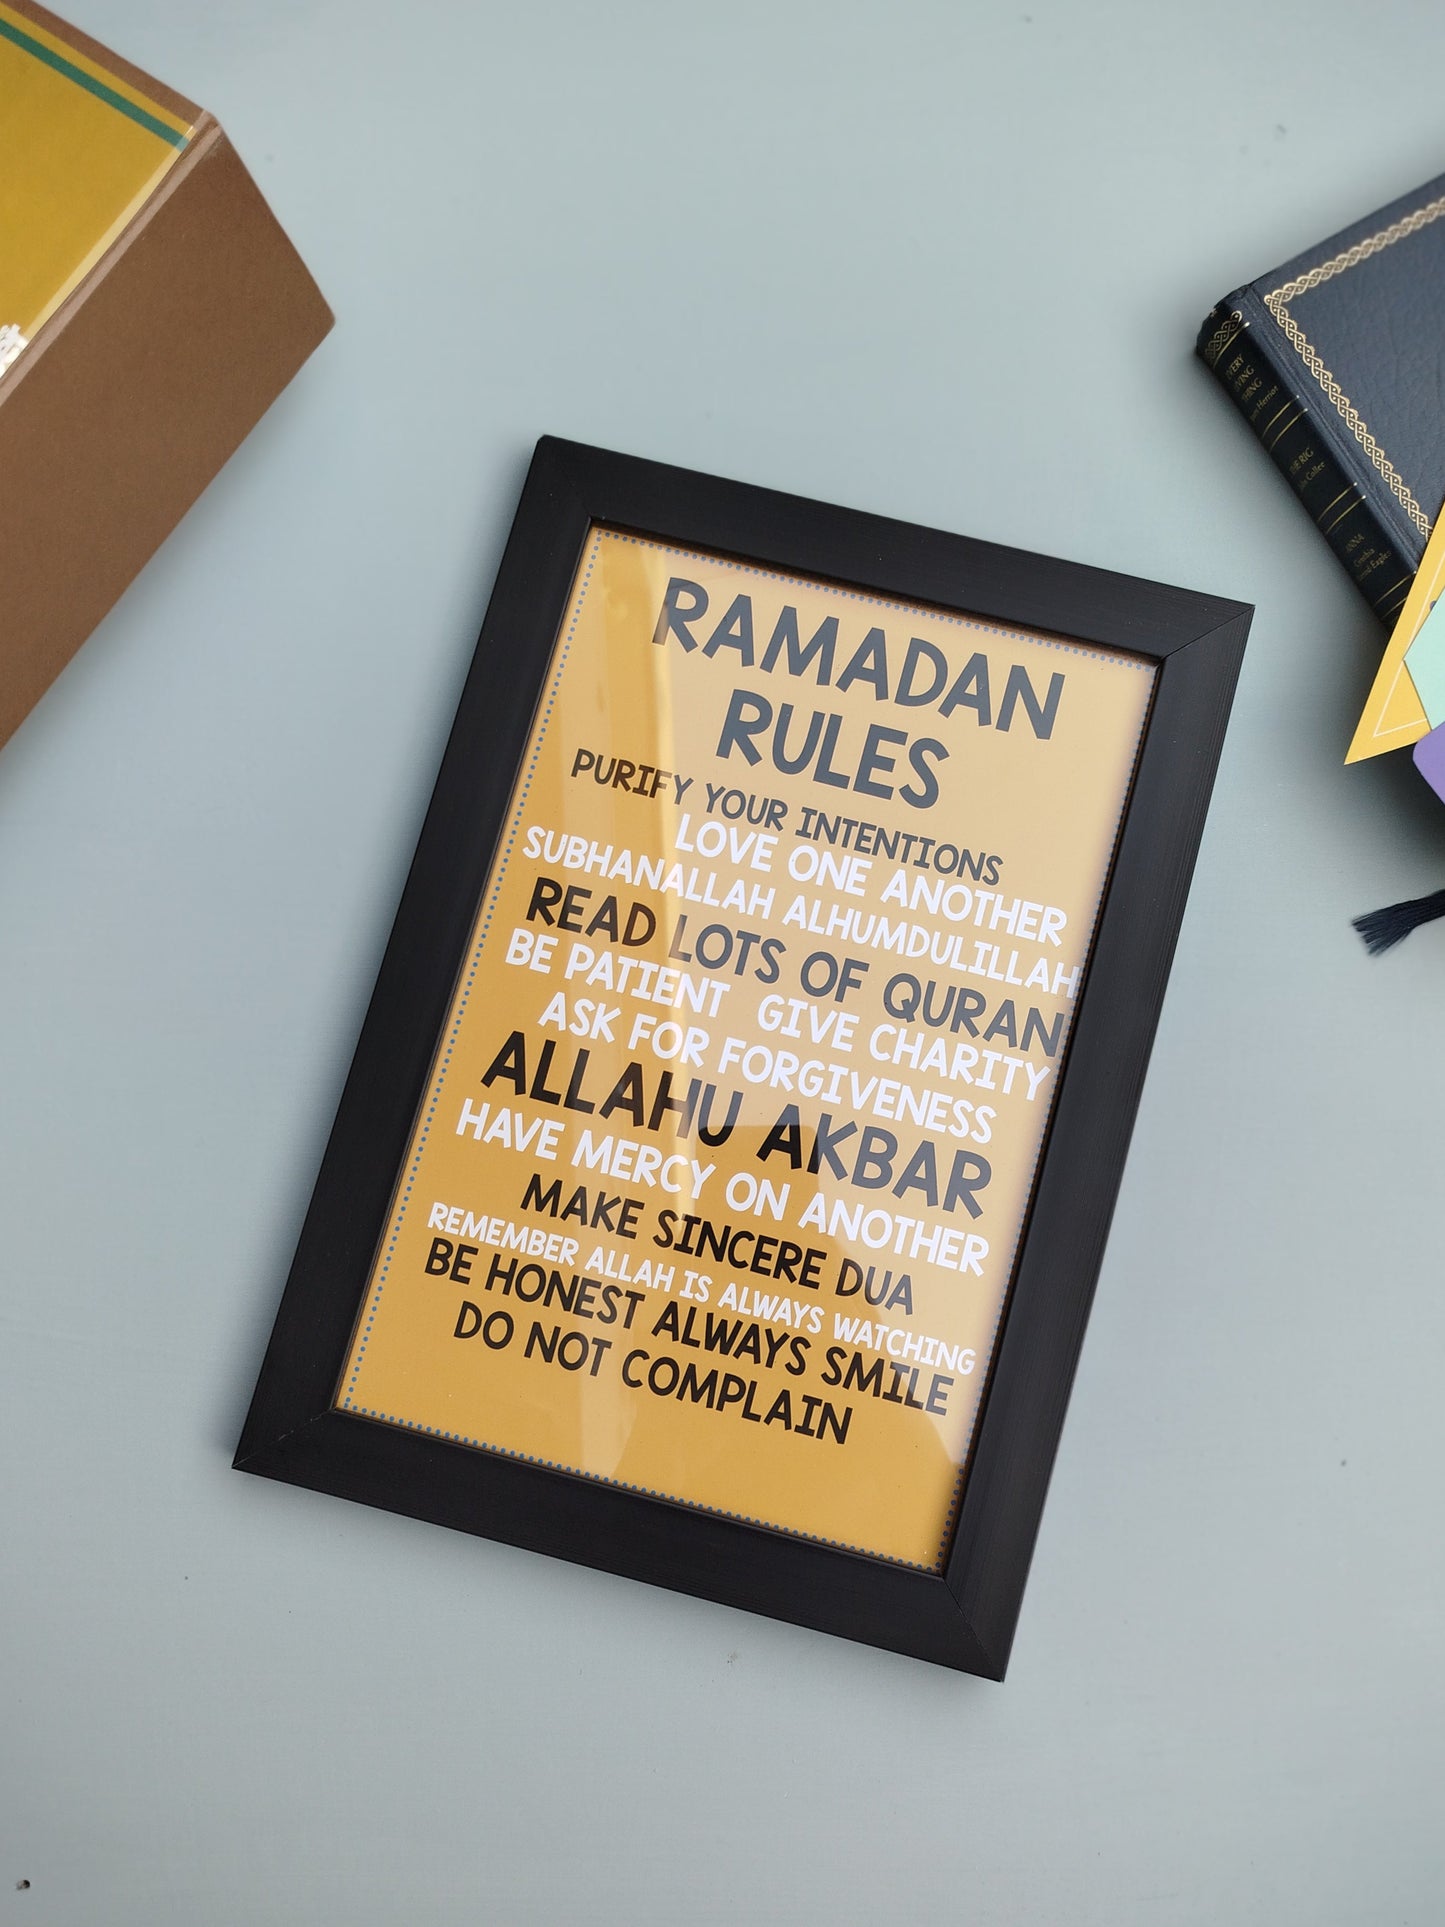 RAMADAN
RULES
PURIFY YOUR INTENTIONS
LOVE ONE ANOTHER
SUBHANALLAH ALHUMDULILLAH
READ LOTS OF QURAN
BE PATIENT GIVE CHARITY
ASK FOR FORGIVENESS
ALLAHU AKBAR
HAVE MERCY ON ANOTHER
MAKE SINCERE DUA
REMEMBER ALLAH IS ALWAYS WATCHING
BE HONEST ALWAYS SMILE
DO NOT COMPLAIN
LIVING
THING
Herriot
THE RIG